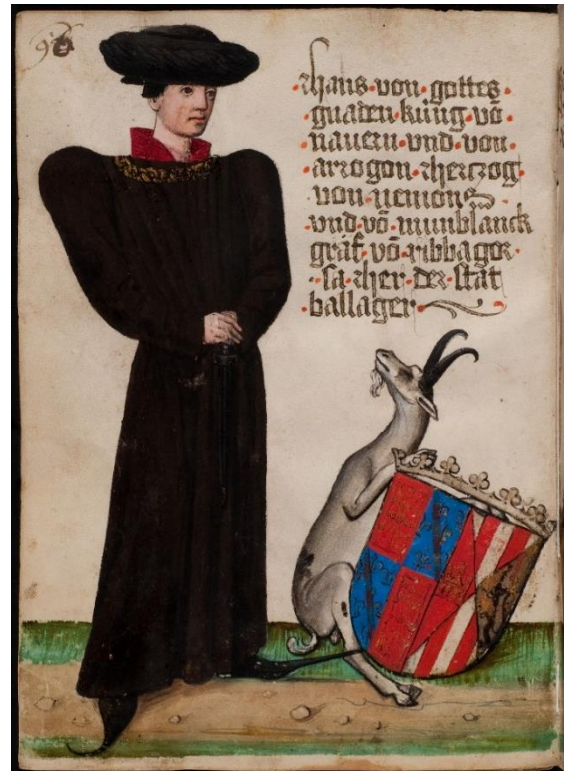 Hans·von·gottes·
·gnaden·küng·vō·
nauern·vnd·von·
·arrogon·Hertzog·
·von·nemons
·vnd·vō·munblanck
graf·vō·ribbagor·
·sa·Her·der·stat
ballager·